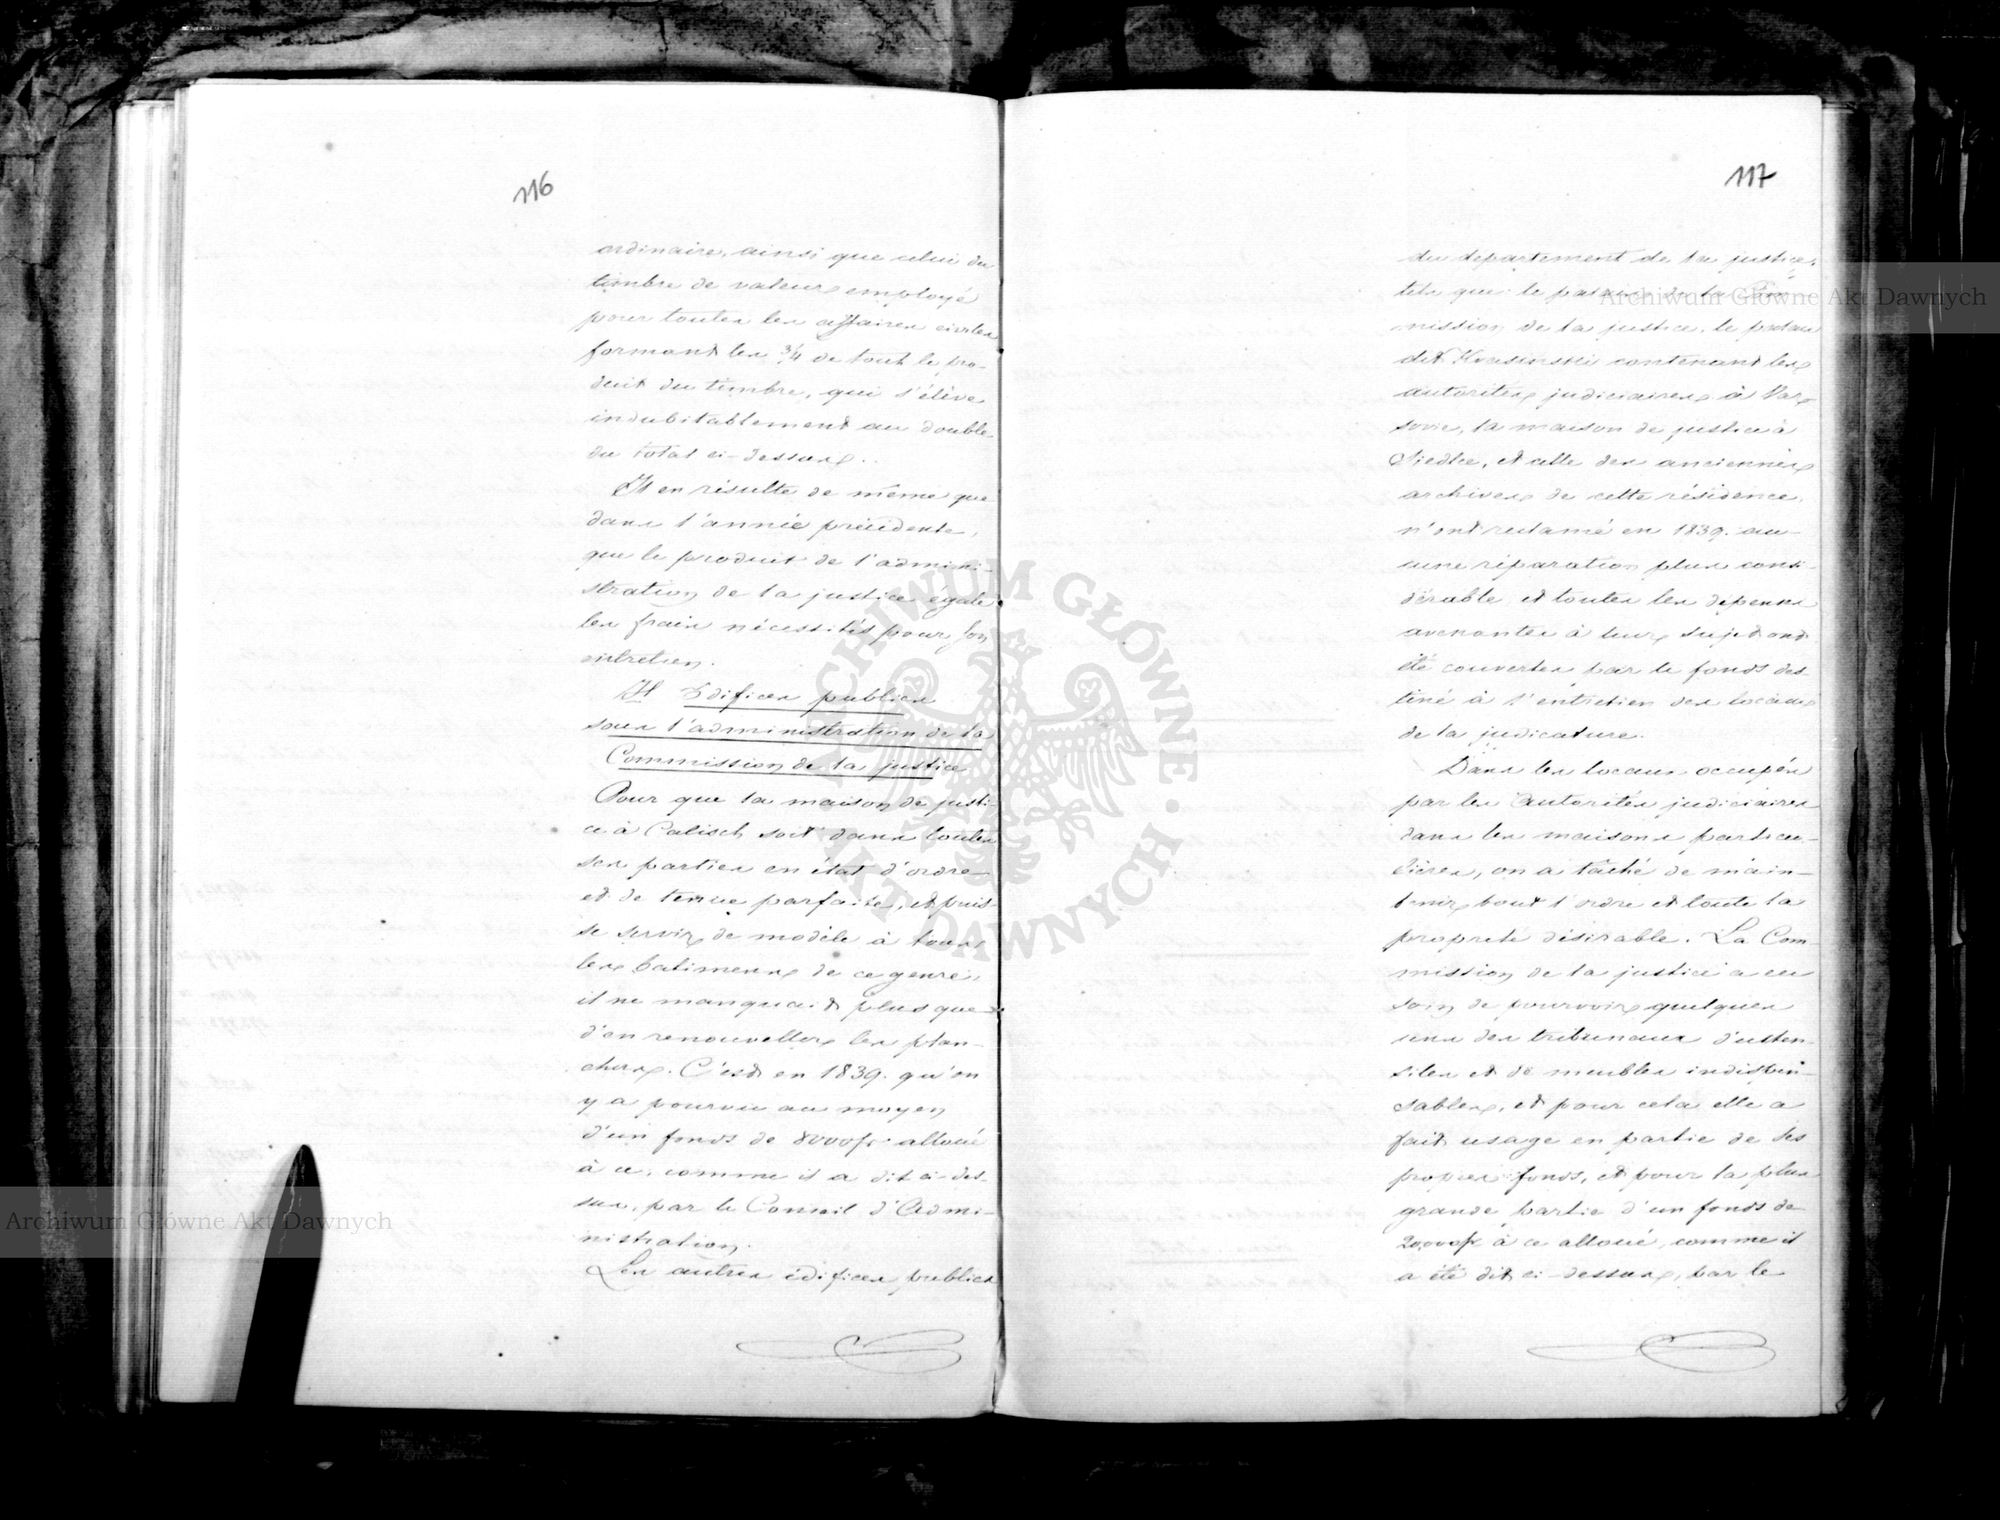 116
ordinaire, ainsi que celui du
timbre de valeur employé
pour toutes les affaires civiles
formant les 3/4 de tout le pro-
duit du timbre, qui s'élève
indubitablement au double
du total ci-dessus.
Il en résulte de même que
dans l'année précédente,
que le produit de l'admini-
stration de la justice égale
les frais nécessités pour son
entretien.
H Edifices publics
sous l'administration de la
Commission de la justice
Pour que la maison de justi-
ce à Calisch soit dans toutes
ses parties en état d'ordre
et de tenue parfaite, et puis-
se servir de modèle à tous
les batimens de ce genre,
il ne manquait plus que
d'en renouveller les plan-
chers. C'est en 1839. qu'on
y a pourvu au moyen
d'un fonds de 8000 fr. alloué
à ce, comme il a dit ci-des-
sus, par le Conseil d'Admi-
nistration.
Les autres édifices publics
117
du département de la justice,
tels que: le palais de la Com-
mission de la justice, le palais
dit Krasinski contenant les
autorités judiciaires à Var-
sovie, la maison de justice à
Siedlce, et celle des anciennes
archives de cette résidence,
n'ont réclamé en 1839. au-
cune réparation plus consi-
dérable, et toutes les dépenses
à leur sujet ont
été couvertes par le fonds des-
tiné à l'entretien des locaux
de la judicature.
Dans les locaux occupés
par les autorités judiciaires
dans les maisons particu-
lières, on a tâché de main-
tenir tout l'ordre et toute la
propreté désirable. La Com-
mission de la justice a eu
soin de pourvoir quelques
uns des tribunaux d'usten-
siles et de meubles indispen-
sables, et pour cela elle a
fait usage en partie de ses
propres fonds, et pour la plus
grande partie d'un fonds de
20,000 fr à ce alloué, comme il
a été dit ci-dessus, par le
Archiwum Główne Akt Dawnych
Archiwum Główne Akt Dawnych
ARCHIWUM GŁÓWNE · AKT DAWNYCH ·